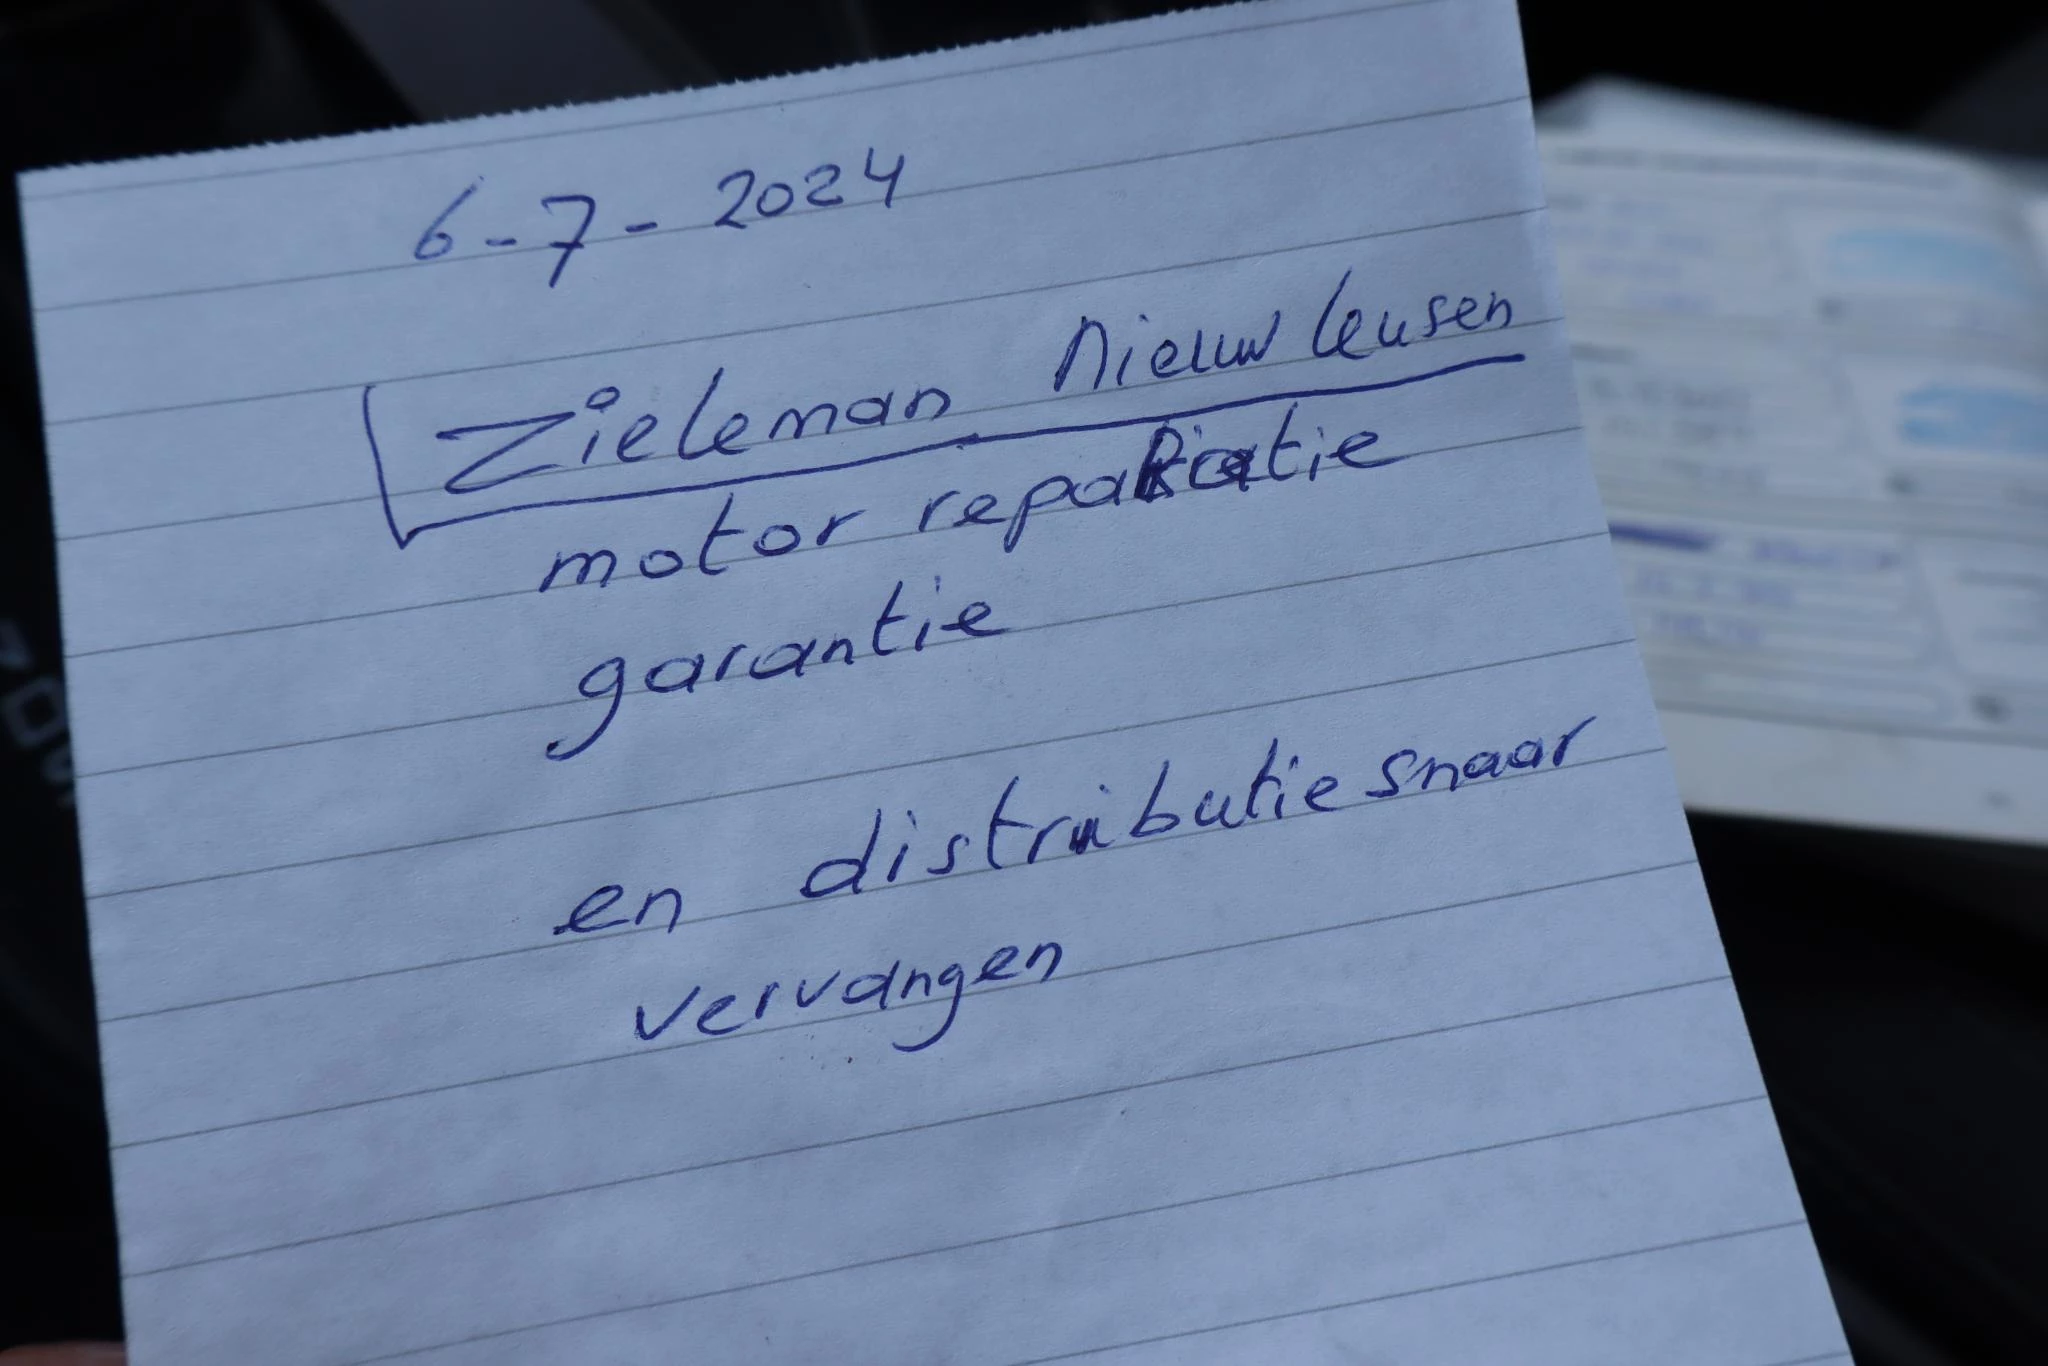 6-7-2024
Zieleman Nieuwleusen
motor reparatie
garantie
en distributiesnaar
vervangen